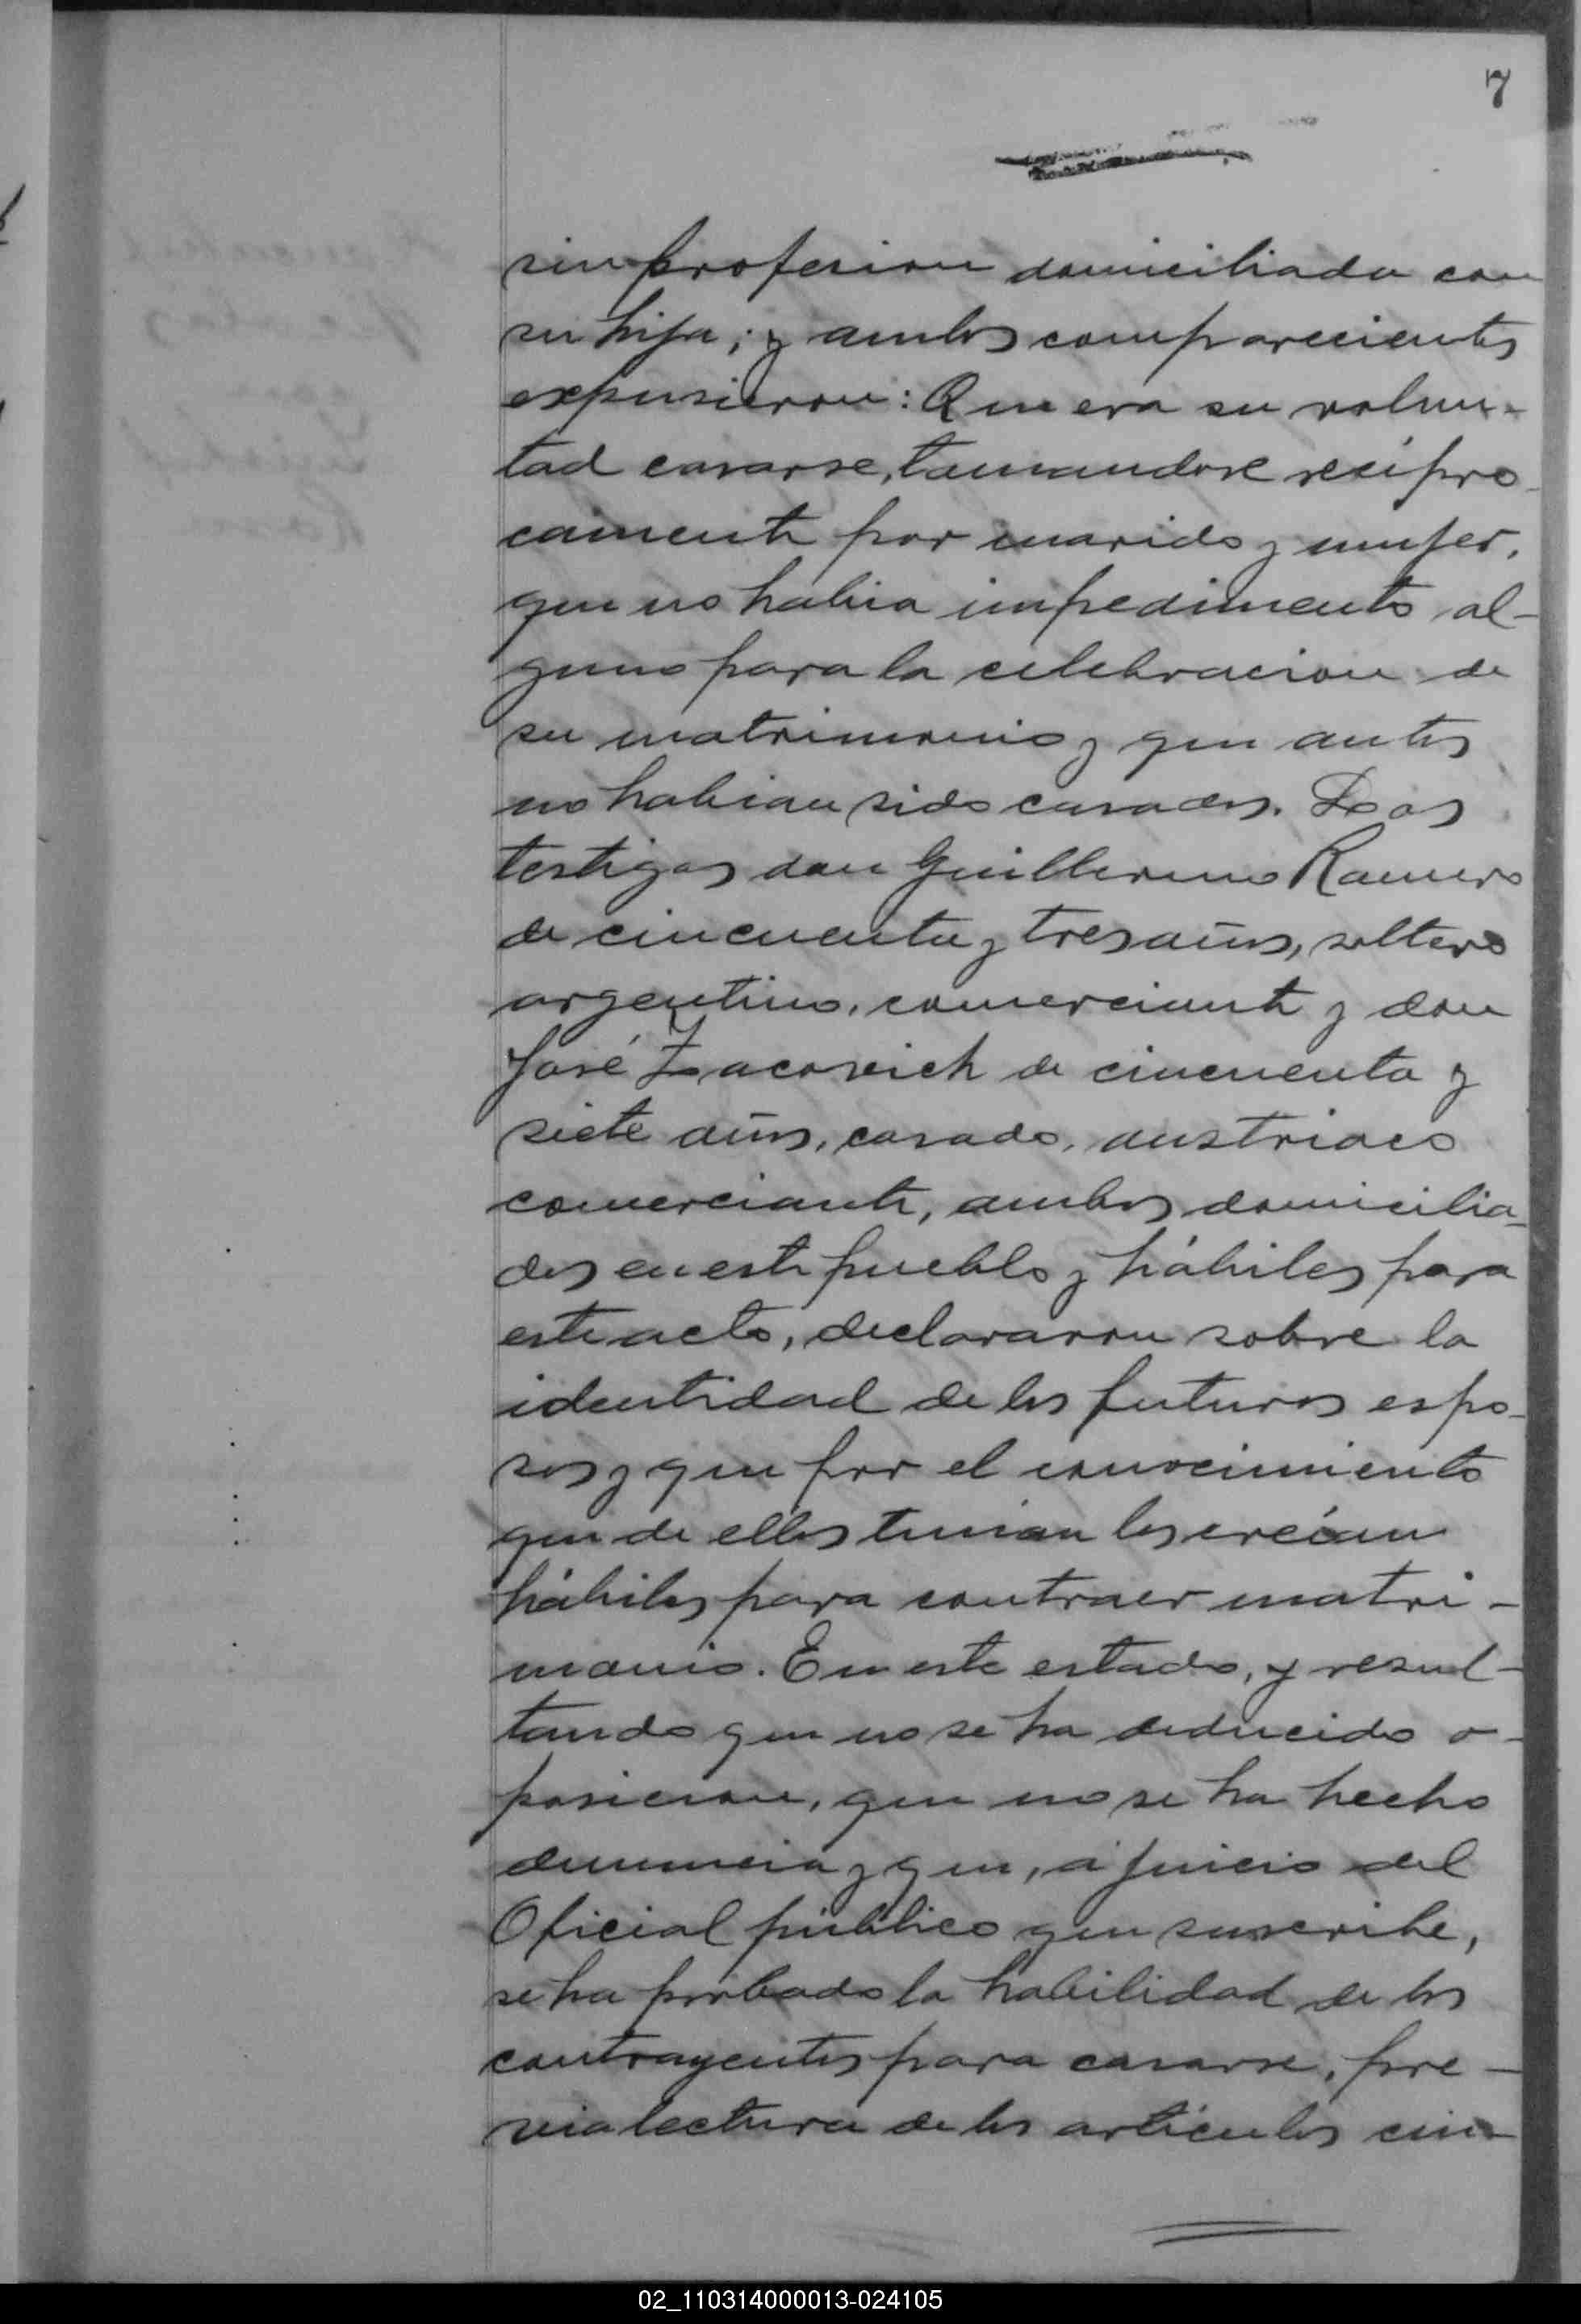 7
sin profesion domiciliada con
su hija; y ambos comparecientes
expusieron: Que era su volun-
tad casarse, tomandose recipro-
camente por marido y mujer,
que no habia impedimento al-
guno para la celebracion de
su matrimonio y que antes
no habian sido casados. Los
testigos don Guillermo Romero
de cincuenta y tres años, soltero
argentino, comerciante y don
José Zacovich de cincuenta y
siete años, casado, austriaco
comerciante, ambos domicilia-
dos en este pueblo y hábiles para
este acto, declararon sobre la
identidad de los futuros espo-
sos y que por el conocimiento
que de ellos tenian los creían
hábiles para contraer matri-
monio. En este estado, y resul-
tando que no se ha deducido o-
posicion, que no se ha hecho
denuncia y que, a juicio del
Oficial público que suscribe,
se ha probado la habilidad de los
contrayentes para casarse, pre-
via lectura de los artículos cin-
02_110314000013-024105